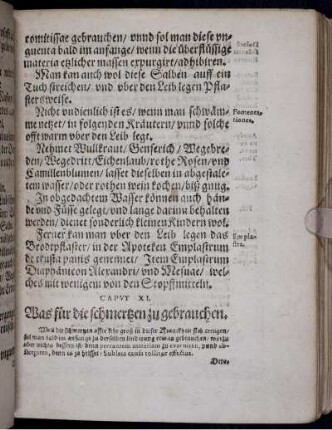 comitissae gebrauchen / vnnd sol man diese vn-
guenta bald im anfange / wenn die überflüssige
materia etzlicher massen expurgirt / adhibiren.
Man kan auch wol diese Salben auff ein
Tuch streichen / vnd vber den Leib legen Pfla-
stersweise.
Nicht vndienlich ist es / wenn man schwäm-
me netzet / in folgenden Kräutern / vnnd solche
offt warm vber den Leib legt.
Fomenta-
tiones.
Nehmet Wullkraut / Genserich / Wegebre-
den / Wegedrit / Eichenlaub / rothe Rosen / vnd
Camillenblumen / lasset dieselben in abgestäle-
tem wasser / oder rothen wein kochen / biß gnug.
In obgedachtem Wasser können auch hän-
de vnd Füsse gelegt / vnd lange darinn behalten
werden / dienet sonderlich kleinen Kindern wol.
Ferner kan man vber den Leib legen das
Brodtpflaster / in der Apoteken Emplastrum
de crusta panis genennet / Item Emplastrum
Diaphœnicon Alexandri / vnd Mesuae / wel-
ches mit wenigem von den Stopffmitteln.
Empla-
stra.
CAPVT XI.
Was für die schmertzen zu gebrauchen.
Weil die schmertzen offte sehr groß in dieser Kranckheit sich ereigen /
sol man bald im anfange zu derselben linderung etwas gebrauchen /
aber nichts bessers ist denn materiam zu evacuiren / vnnd ab-
denn es zu heisset: Sublata causa tollitur effectus.
Den-